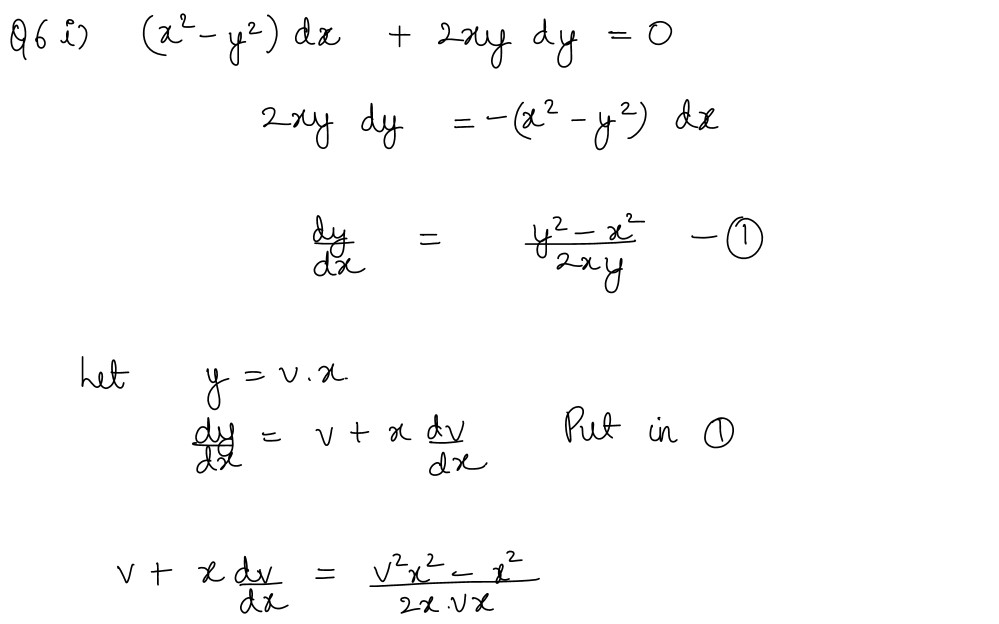 Q6 i) (x² - y²) dx + 2xy dy = 0
2xy dy = -(x² - y²) dx
dy/dx = (y² - x²)/(2xy) - ①
Let y = v.x.
dy/dx = v + x dv/dx Put in ①
v + x dv/dx = (v²x² - x²)/(2x.vx)